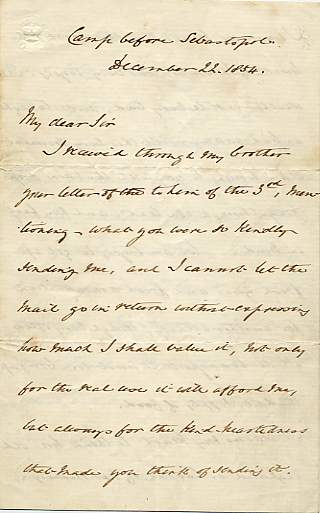 Camp before Sebastopol.
December 22. 1854.
My dear Sir
I received through my brother
your letter of the to him of the 3rd, men
tioning what you were so kindly
sending me, and I cannot let the
mail go in return without expressing
how much I shall value it, not only
for the real use it will afford me,
but always for the kind heartedness
that made you think of sending it.